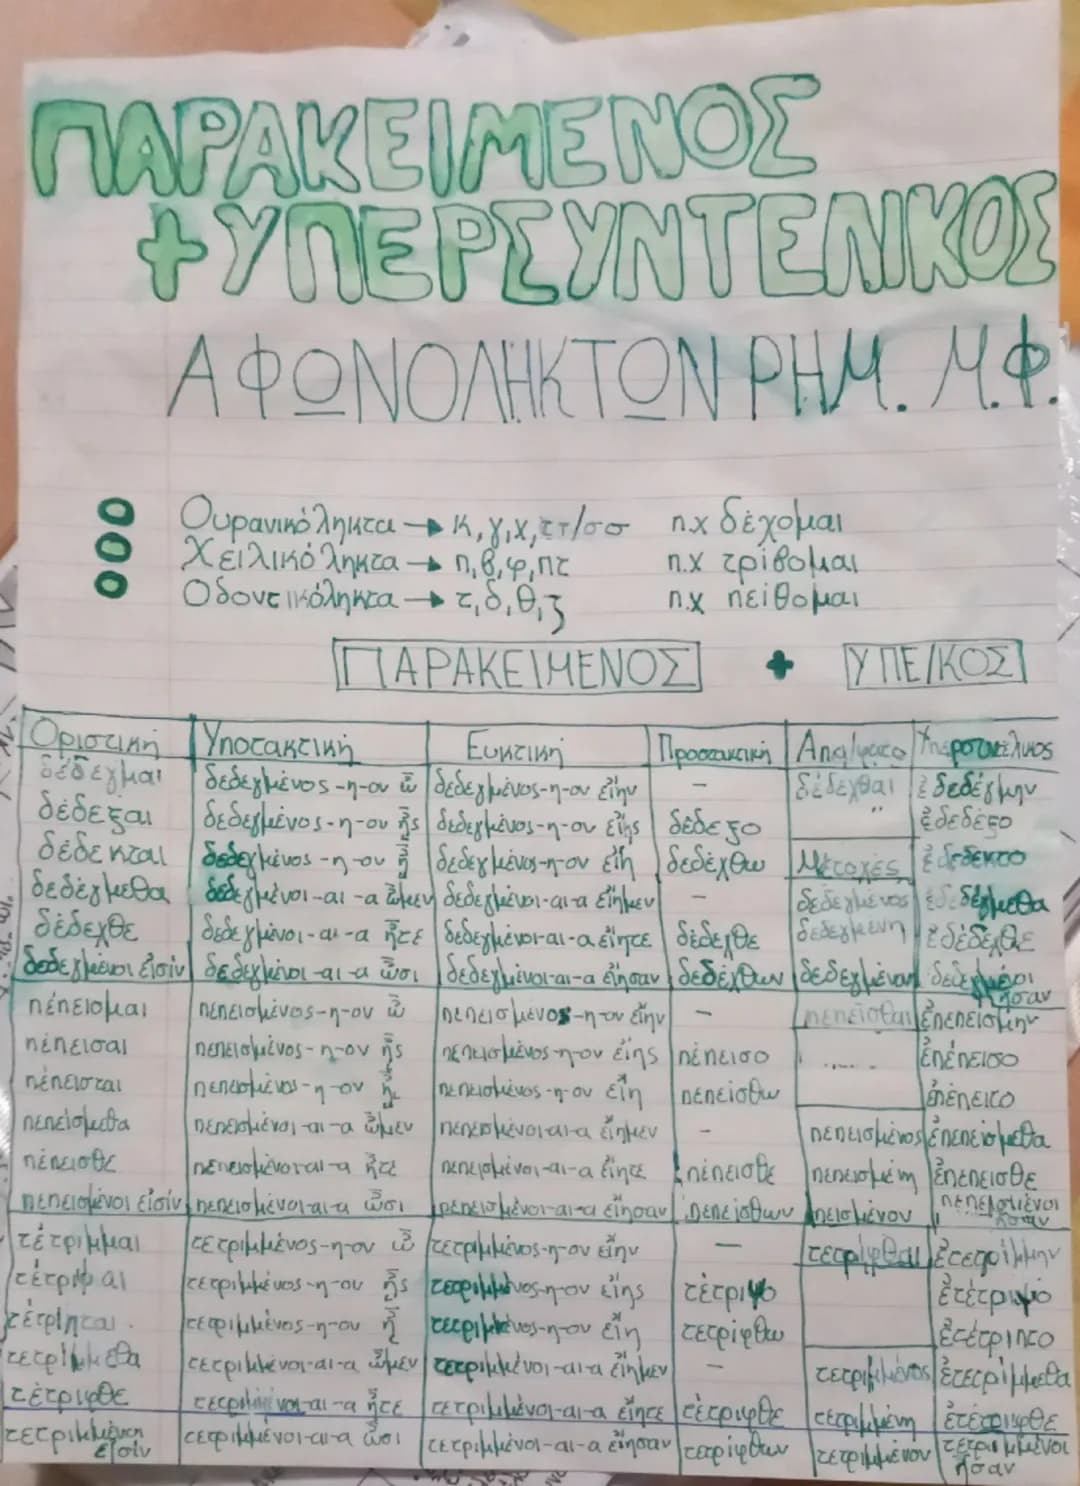 ΠΑΡΑΚΕΙΜΕΝΟΣ
+ΥΠΕΡΣΥΝΤΕΛΙΚΟΣ
ΑΦΩΝΟΛΗΚΤΩΝ ΡΗΜ. Μ.Φ.
Ουρανικόληκτα → κ, γ, χ, ττ/σσ π.χ δέχομαι
Χειλικόληκτα → π, β, φ, πτ π.χ τρίβομαι
Οδοντικόληκτα → τ, δ, θ, ζ π.χ πείθομαι
ΠΑΡΑΚΕΙΜΕΝΟΣ + ΥΠΕ/ΚΟΣ
Οριστική Υποτακτική Ευκτική Προστακτική Απα/φατο Υπερσυντέλικος
δέδεγμαι δεδεγμένος-η-ον ὦ δεδεγμένος-η-ον εἴην - δεδέχθαι ἐδεδέγμην
δέδεξαι δεδεγμένος-η-ον ᾖς δεδεγμένος-η-ον εἴης δέδεξο " ἐδέδεξο
δέδεκται δεδεγμένος-η-ον δεδεγμένος-η-ον εἴη δεδέχθω Μετοχές ἐδέδεκτο
δεδέγμεθα δεδεγμένοι-αι-α ὦμεν δεδεγμένοι-αι-α εἴημεν - δεδεγμένος ἐδεδέγμεθα
δέδεχθε δεδεγμένοι-αι-α ἦτε δεδεγμένοι-αι-α εἴητε δέδεχθε δεδεγμένη ἐδέδεχθε
δεδεγμένοι εἰσίν δεδεγμένοι-αι-α ὦσι δεδεγμένοι-αι-α εἴησαν δεδέχθων δεδεγμένον δεδεγμένοι ἦσαν
πέπεισμαι πεπεισμένος-η-ον ὦ πεπεισμένος-η-ον εἴην - πεπεῖσθαι ἐπεπείσμην
πέπεισαι πεπεισμένος-η-ον ᾖς πεπεισμένος-η-ον εἴης πέπεισο ..... ἐπέπεισο
πέπεισται πεπεισμένος-η-ον πεπεισμένος-η-ον εἴη πεπείσθω ἐπέπειτο
πεπείσμεθα πεπεισμένοι-αι-α ὦμεν πεπεισμένοι-αι-α εἴημεν - πεπεισμένος ἐπεπείσμεθα
πέπεισθε πεπεισμένοι-αι-α ἦτε πεπεισμένοι-αι-α εἴητε πέπεισθε πεπεισμένη ἐπέπεισθε
πεπεισμένοι εἰσίν πεπεισμένοι-αι-α ὦσι πεπεισμένοι-αι-α εἴησαν πεπείσθων πεισμένον πεπεισμένοι ἦσαν
τέτριμμαι τετριμμένος-η-ον ὦ τετριμμένος-η-ον εἴην - τετρίφθαι ἐτετρίμμην
τέτριψαι τετριμμένος-η-ον ᾖς τετριμμένος-η-ον εἴης τέτριψο ἐτέτριψο
τέτριπται. τετριμμένος-η-ον ᾖ τετριμμένος-η-ον εἴη τετρίφθω ἐτέτριπτο
τετρίμμεθα τετριμμένοι-αι-α ὦμεν τετριμμένοι-αι-α εἴημεν - τετριμμένος ἐτετρίμμεθα
τέτριφθε τετριμμένοι-αι-α ἦτε τετριμμένοι-αι-α εἴητε τέτριφθε τετριμμένη ἐτέτριφθε
τετριμμένοι εἰσίν τετριμμένοι-αι-α ὦσι τετριμμένοι-αι-α εἴησαν τετρίφθων τετριμμένον τετριμμένοι ἦσαν